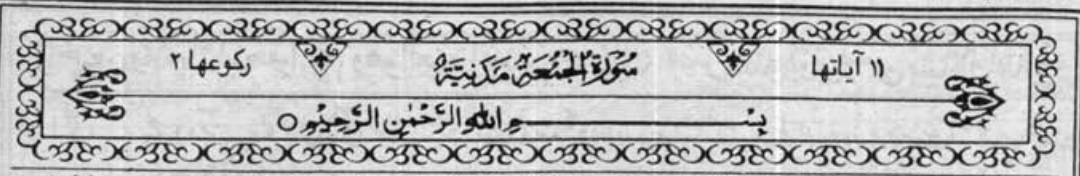 ۱۱ آیاتها سُوْرَةُ الْجُمُعَةِ مَدَنِیَّةٌ رکوعها ۲
بِسْــــــمِ اللهِ الرَّحْمٰنِ الرَّحِیْمِ ○